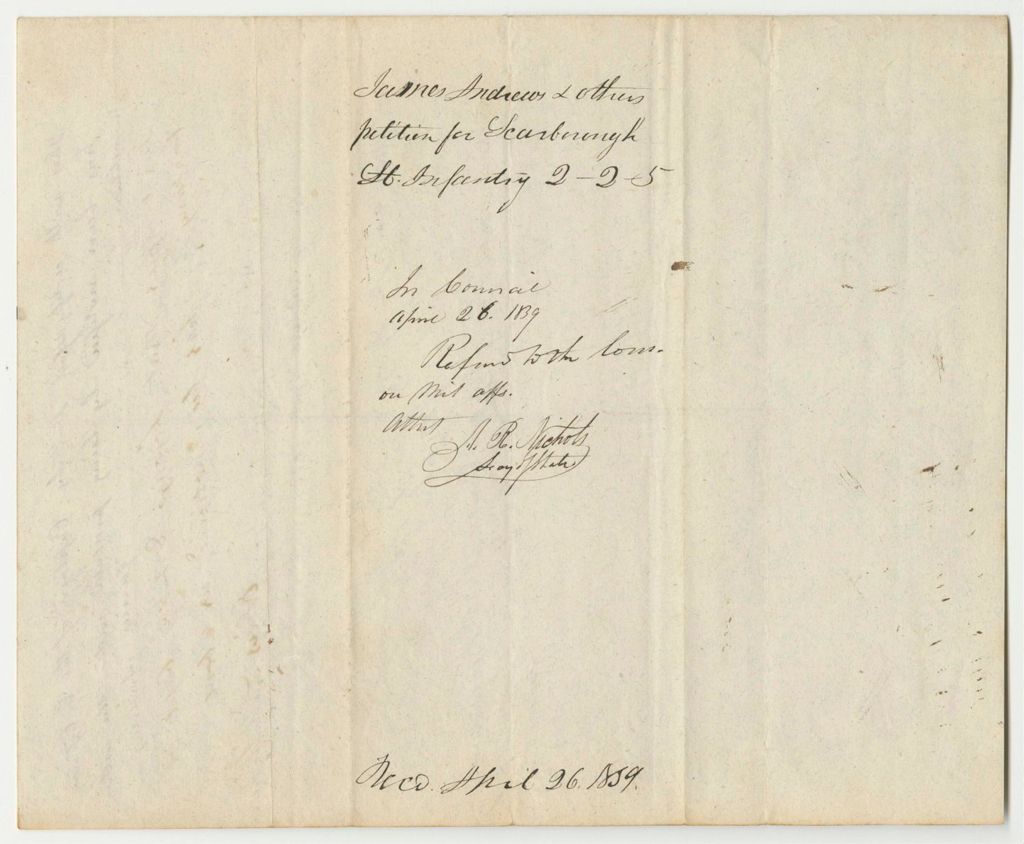 James Andrews & others
petition for Scarborough
Lt. Infantry 2-2-5
In Council
April 26. 1839
Referred to the Com.
on Mil affs.
Attest
A. R. Nichols
Secy of State
Recd. April 26. 1839.